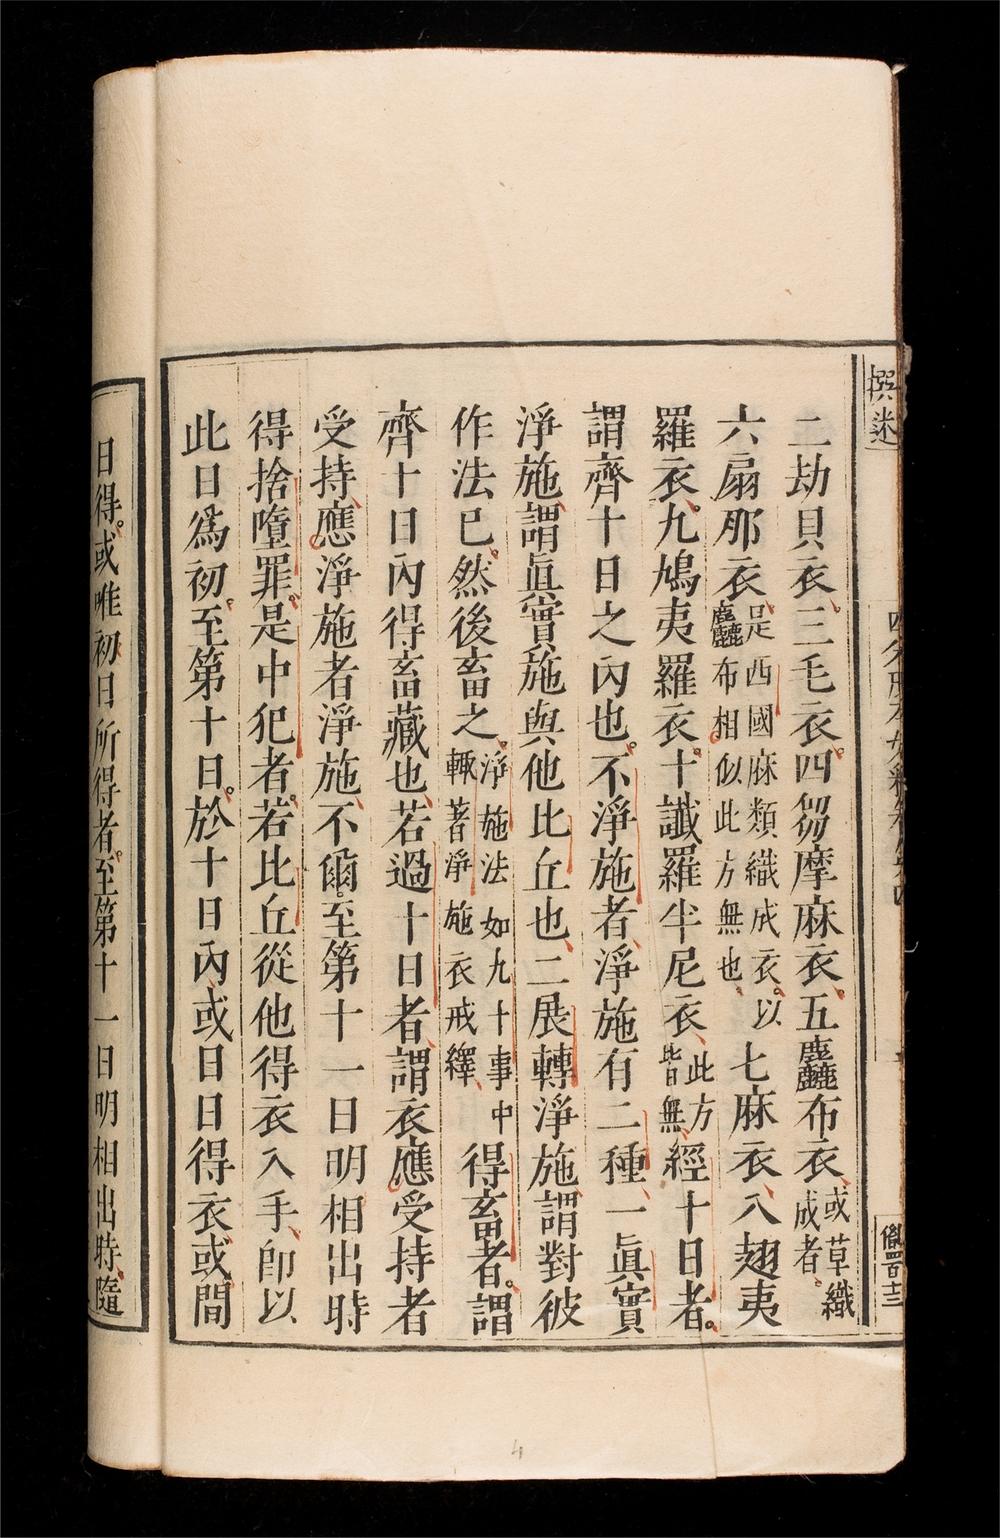 撰述
二劫貝衣三毛衣四芻摩麻衣五麤布衣或草織成者
六扇那衣是西國麻類織成衣以麤布相似此方無也七麻衣八翅夷
羅衣九鳩夷羅衣十讖羅半尼衣此方皆無經十日者
謂齊十日之內也不淨施者淨施有二種一眞實
淨施謂眞實施與他比丘也二展轉淨施謂對彼
作法已然後畜之淨施法如九十事中輒著淨施衣戒繹得畜者謂
齊十日內得畜藏也若過十日者謂衣應受持者
受持應淨施者淨施不爾至第十一日明相出時
得捨墮罪是中犯者若比丘從他得衣入手卽以
此日爲初至第十日於十日內或日日得衣或間
日得或唯初日所得者至第十一日明相出時隨